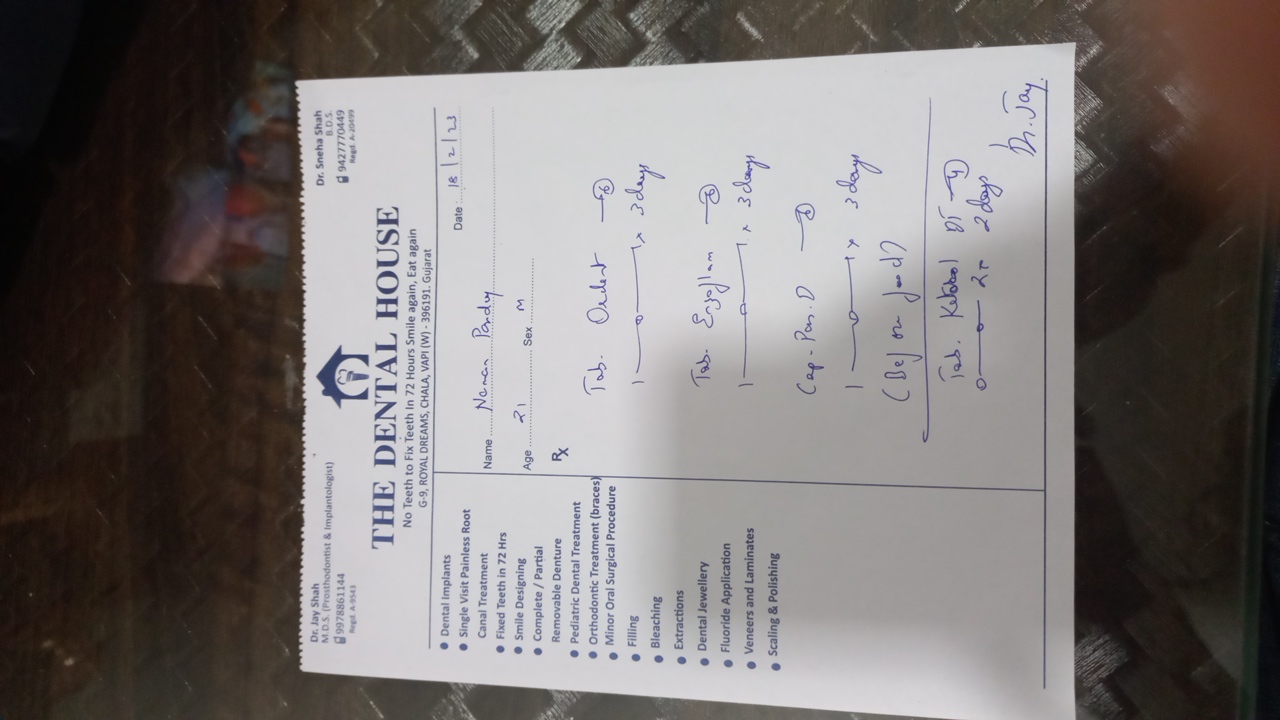 Dr. Jay Shah
M.D.S. (Prosthodontist & Implantologist)
9978861144
Regd. A-9543
Dr. Sneha Shah
B.D.S.
9427770449
Regd. A-20499
THE DENTAL HOUSE
No Teeth to Fix Teeth In 72 Hours Smile again, Eat again
G-9, ROYAL DREAMS, CHALA, VAPI (W) - 396191. Gujarat
Dental Implants
Single Visit Painless Root
Canal Treatment
Fixed Teeth in 72 Hrs
Smile Designing
Complete / Partial
Removable Denture
Pediatric Dental Treatment
Orthodontic Treatment (braces)
Minor Oral Surgical Procedure
Filling
Bleaching
Extractions
Dental Jewellery
Fluoride Application
Veneers and Laminates
Scaling & Polishing
Date : 18/2/23
Name Naman Pandey
Age 21 Sex M
Rx
Tab. Ordent — 6
1 — 0 — 1 x 3 days
Tab. Enzoflam — 6
1 — 0 — 1 x 3 days
Cap. Pan. D — 6
1 — 0 — 1 x 3 days
(Before food)
Tab. Ketorol DT — 4
0 — 0 — 2 x 2 days
Dr. Jay